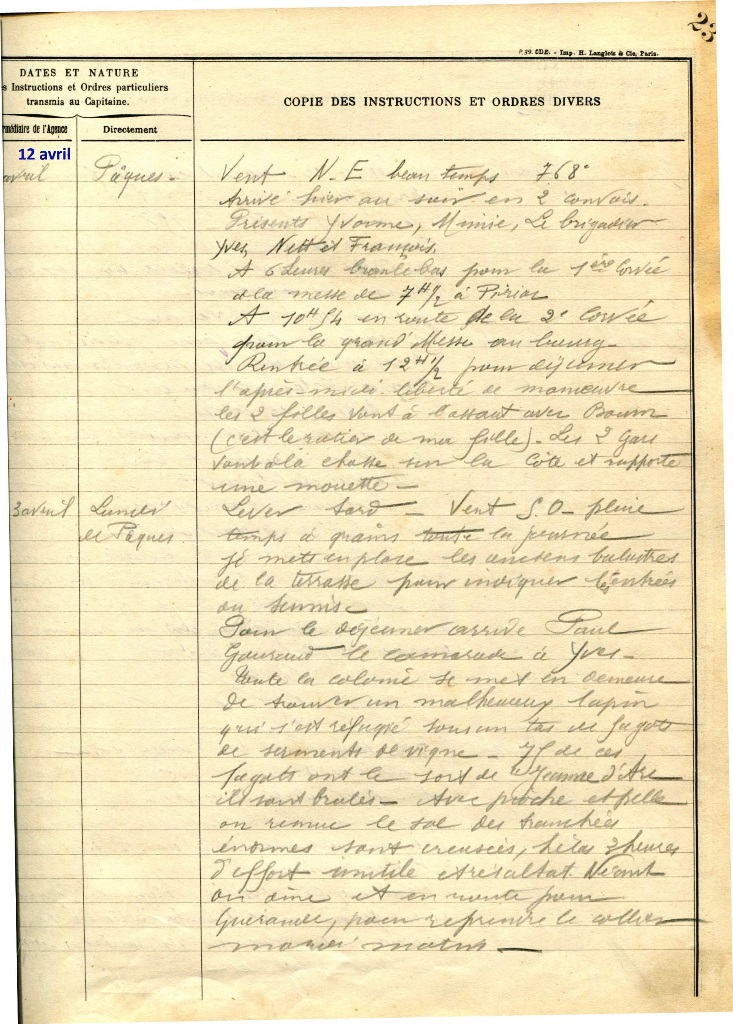 23
P. 39. CDE. - Imp. H. Langlois & Cie, Paris.
DATES ET NATURE
s Instructions et Ordres particuliers
transmis au Capitaine.
COPIE DES INSTRUCTIONS ET ORDRES DIVERS
rmédiaire de l'Agence
Directement
12 avril
avril Pâques - Vent N-E beau temps 768°
Arrivé hier au soir en 2 convois.
Présents Yvonne, Mimie, Le brigadier
Yves, Nett et François.
A 6 heures branle bas pour la 1ère Corvée
à la messe de 7H1/2 à Piriac
A 10H54 en route de la 2e Corvée
pour la grand'Messe au bourg -
Rentrée à 12H1/2 pour déjeuner
l'après-midi liberté de manœuvre
les 2 filles vont à l'assaut avec
(c'est le ratier de ma fille) - Les 2 Gars
vont à la chasse sur la Côte et rapporte
une mouette -
3 avril Lundi Lever tard - Vent S.O - pluie
de Pâques. temps à grains toute la journée
je mets en place les anciens balustres
de la terrasse pour indiquer les entrées
du semis -
Pour le déjeuner arrive Paul
Gouraud le camarade à Yves -
toute la colonie se met en demeure
de trouver un malheureux lapin
qui s'est refugié sous un tas de fagots
de serments de vigne - 75 de ces
fagots ont le sort de Jeanne d'Arc
ils sont brulés - Avec pioche et pelle
on remue le sol des tranchées
énormes sont creusées, hélas 3 heures
d'effort inutile et résultat Néant
on dine et en route pour
Guérande, pour reprendre le collier
mardi matin -